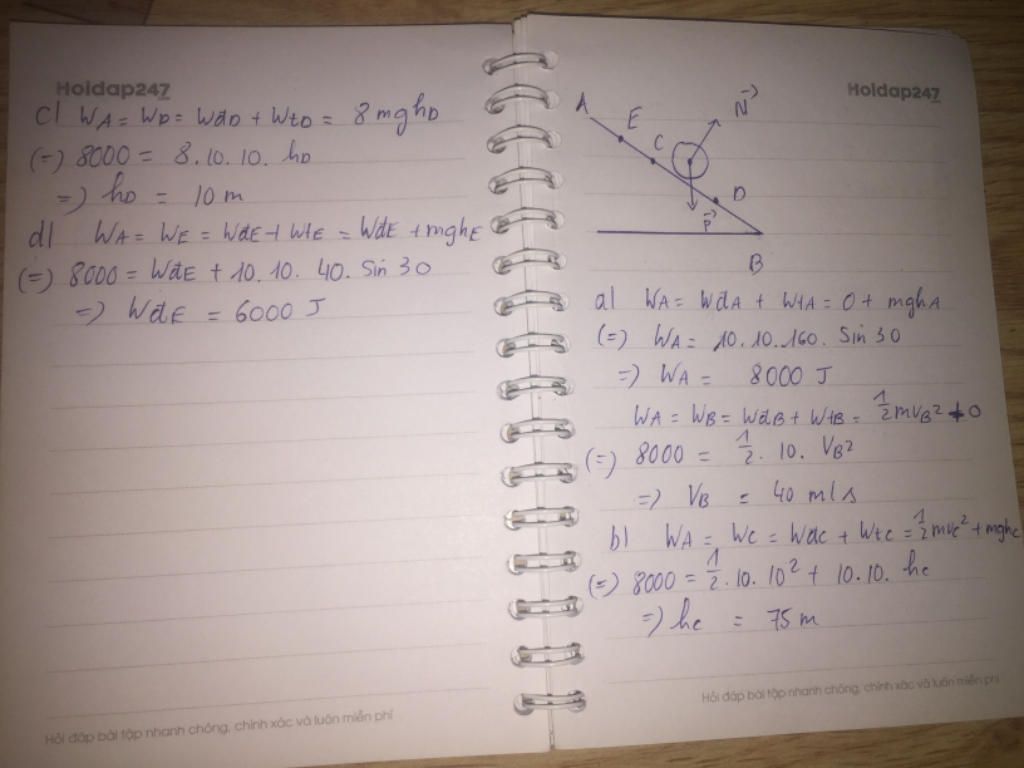 Hoidap247
c) WA = WD = WđD + WtD = 8mghD
(=) 8000 = 8.10.10. hD
=) hD = 10 m
d) WA = WE = WđE + WtE = WđE + mghE
(=) 8000 = WđE + 10.10. 40. Sin 30
=) WđE = 6000 J
Hỏi đáp bài tập nhanh chóng, chính xác và luôn miễn phí
Hoidap247
A
E
C
N
D
P
B
a) WA = WđA + WtA = 0 + mghA
(=) WA = 10.10.160. Sin 30
=) WA = 8000 J
WA = WB = WđB + WtB = 1/2 mvB² + 0
(=) 8000 = 1/2 . 10. VB²
=) VB = 40 m/s
b) WA = WC = WđC + WtC = 1/2 mvC² + mghC
(=) 8000 = 1/2 .10. 10² + 10.10. hC
=) hC = 75 m
Hỏi đáp bài tập nhanh chóng, chính xác và luôn miễn phí